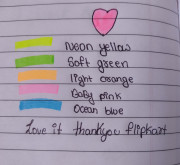 Neon yellow
Soft green
light orange
Baby pink
Ocean blue
Love it thankyou flipkart